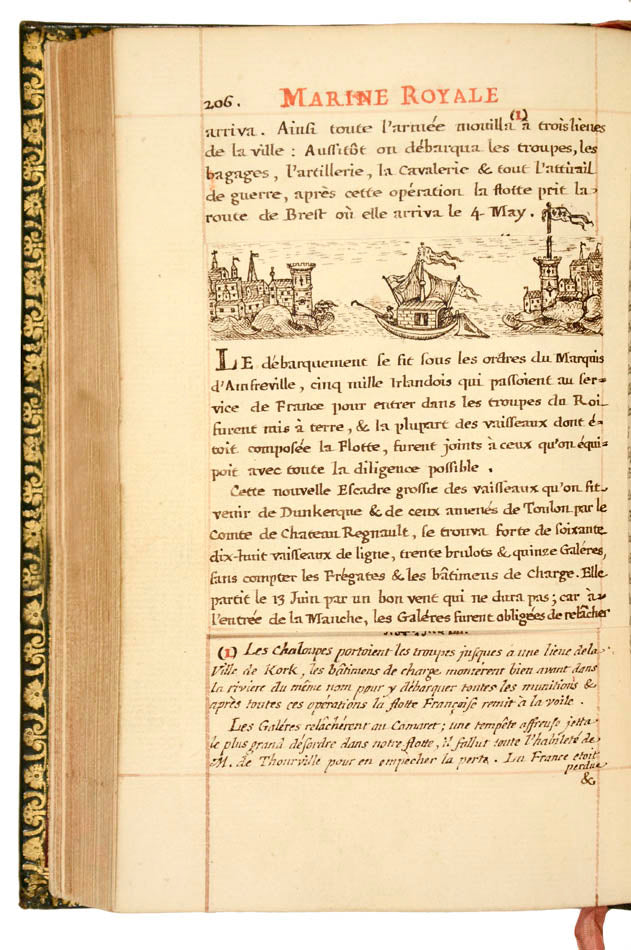 206. MARINE ROYALE
arriva. Ainsi toute l'armée mouilla (1) à trois lieues
de la ville : Aussitôt on débarqua les troupes, les
bagages, l'artillerie, la Cavalerie & tout l'attirail
de guerre, après cette opération la flotte prit la
route de Brest où elle arriva le 4 May.
LE débarquement se fit sous les ordres du Marquis
d'Amfreville, cinq mille Irlandois qui passoient au ser-
vice de France pour entrer dans les troupes du Roi
furent mis à terre, & la plupart des vaisseaux dont é-
toit composée la Flotte, furent joints à ceux qu'on équi-
poit avec toute la diligence possible.
Cette nouvelle Escadre grossie des vaisseaux qu'on fit
venir de Dunkerque & de ceux amenés de Toulon par le
Comte de Chateau Regnault, se trouva forte de soixante
dix-huit vaisseaux de ligne, trente brulots & quinze Galéres,
sans compter les Frégates & les bâtimens de Charge. Elle
partit le 13 Juin par un bon vent qui ne dura pas; car à
l'entrée de la Manche, les Galéres furent obligées de relâcher
(1) Les Chaloupes portoient les troupes jusques à une lieue de la
Ville de Kork, les bâtimens de charge monterent bien avant dans
la riviere du même nom pour y débarquer toutes les munitions &
après toutes ces opérations la flotte Française remit à la voile.
Les Galéres relâchérent au Camaret; une tempête affreuse jetta
le plus grand désordre dans notre flotte, il fallut toute l'habileté de
M. de Thourville pour en empecher la perte. La France étoit
perdue
&